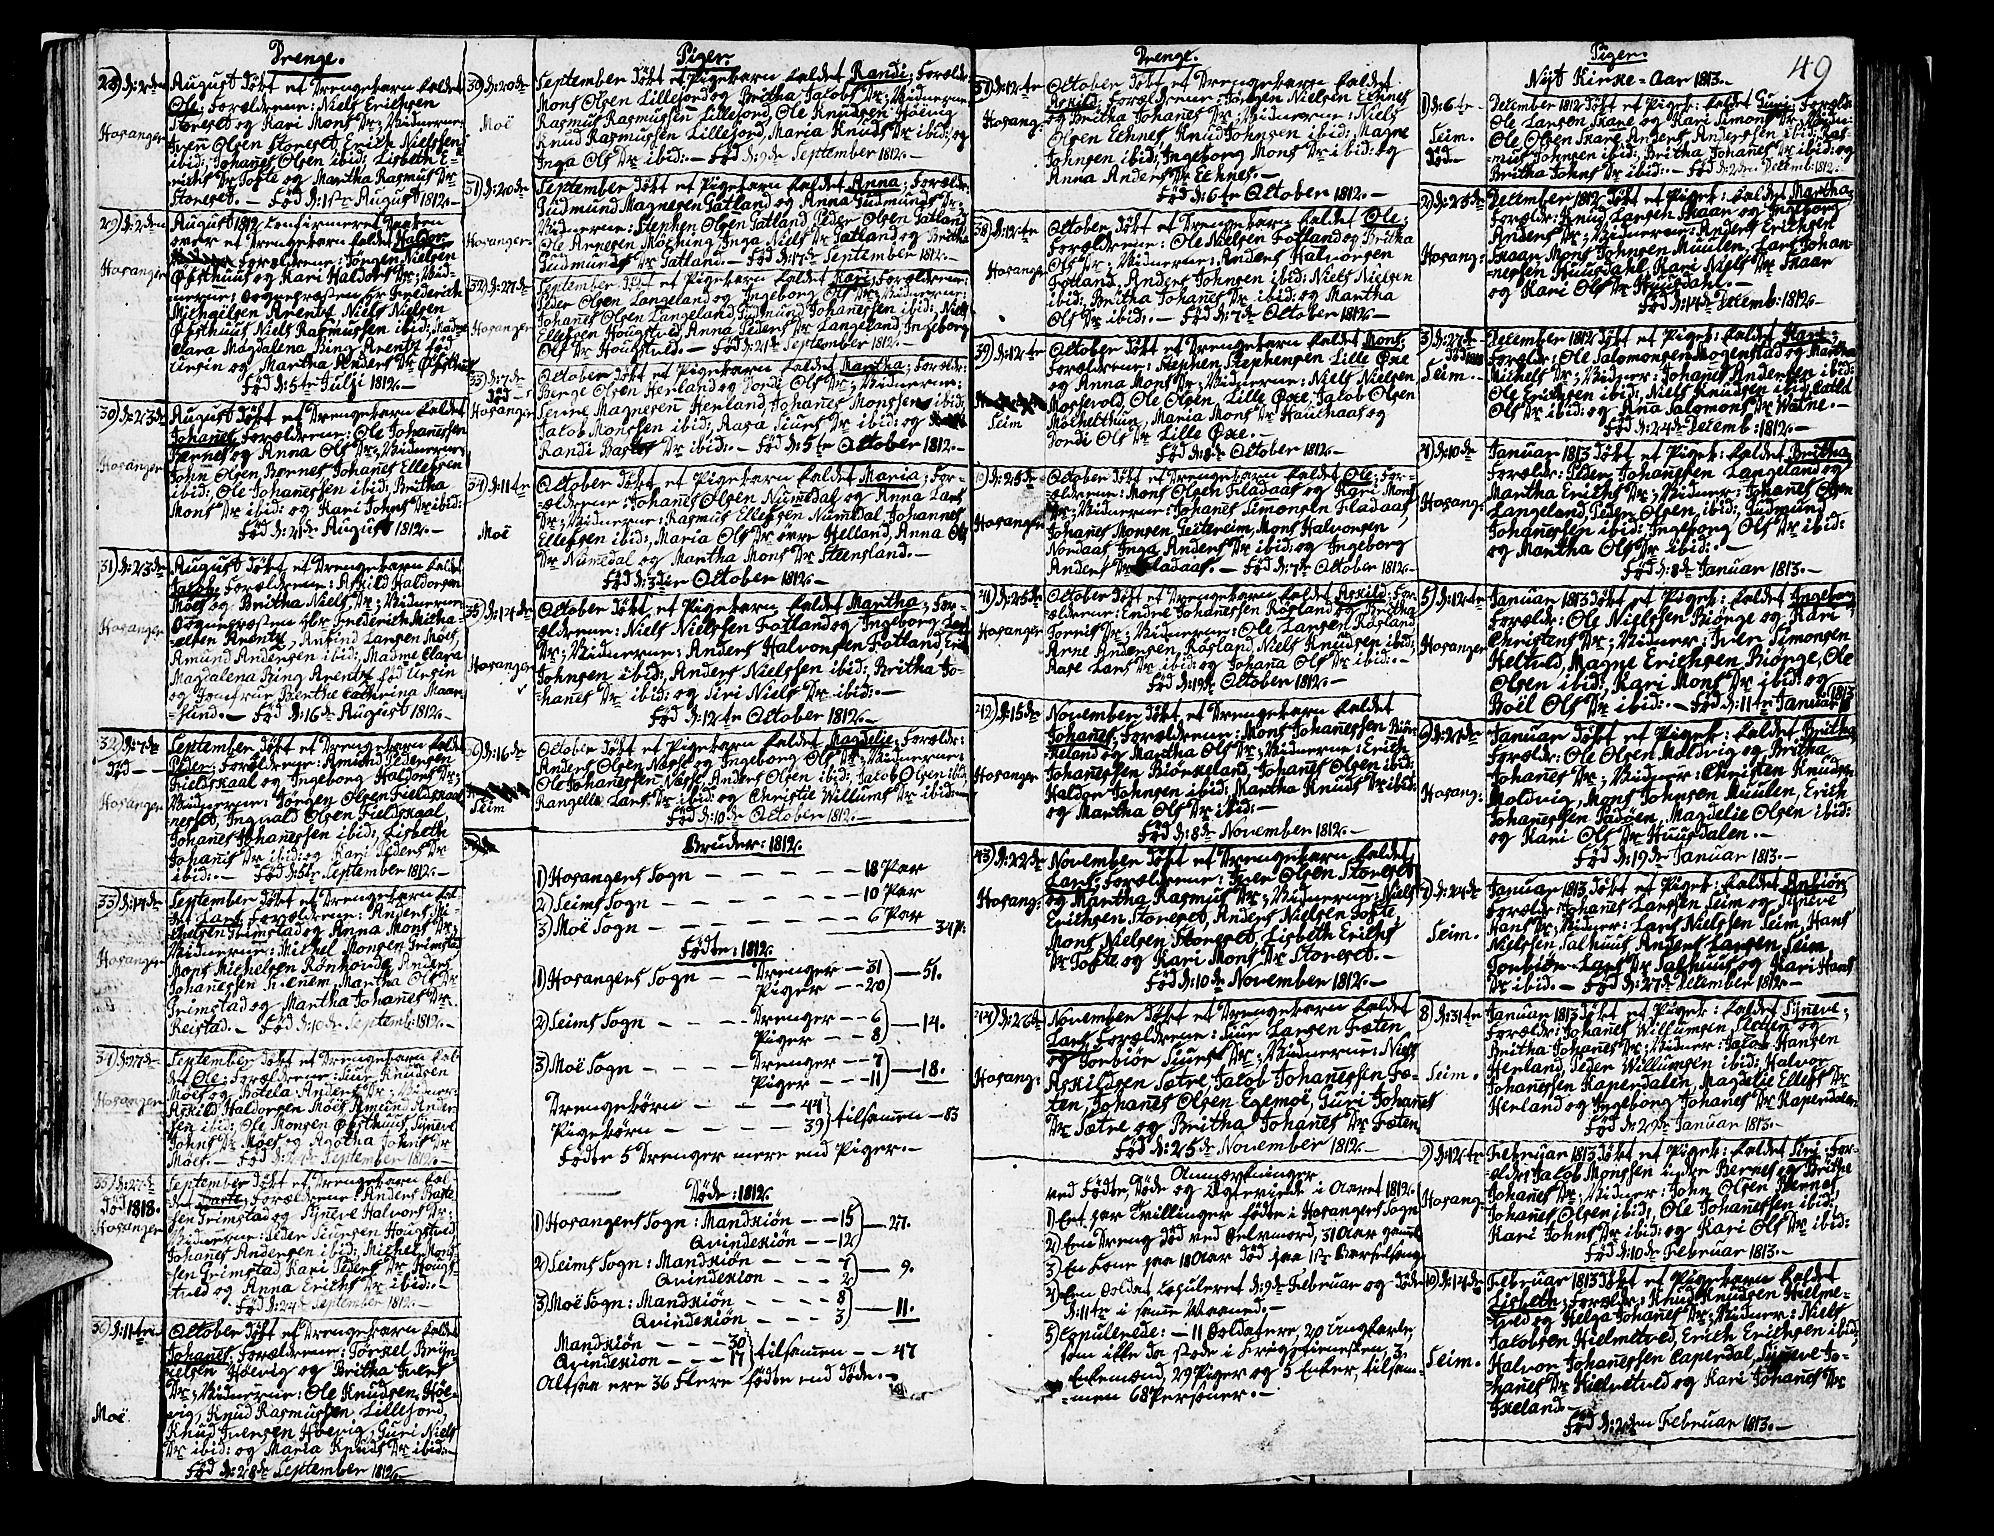 Drenge.
28) d: 2den
Hosanger
August døbt et Drengebarn kaldet
Ole; Forældrene: Niels Erichsen
Storeset og Kari Mons Dr; Vidnerne:
Iver Olsen Storeset, Erich Nielssen
ibid: Johanes Olsen ibid: Lisbeth E-
richs Dr Tofte og Martha Rasmus Dr
Storeset. — Fød d: 1ste August 1812. —
29) d: 2den
Hosanger
August 1812 Confirmeret Daaben
over et Drengebarn kaldet Haldor
Forældrene: Jørgen Nielsen
Øfsthuus og Kari Haldors Dr; Vid-
nerne: Sognepræsten Hr Frederich
Michaelsen Arentz Niels Nielsen
Øfsthuus Niels Rasmussen ibid: Madme
Clara Magdalena Bing Arentz fød
Ursin og Martha Anders Dr Øfsthuus
Fød d: 5te Julji 1812. —
30) d: 23de
Hosanger
August døbt et Drengebarn kaldet
Johanes; Forældrene: Ole Johanessen
Bernes og Anna Ols Dr; Vidnerne:
John Olsen Bernes Johanes Ellefsen
ibid: Ole Johanessen ibid: Britha
Mons Dr ibid: og Kari Johns Dr ibid:
Fød d: 21de August 1812. —
31) d: 23de
Hosanger
August døbt et Drengebarn kaldet
Jacob; Forældrene: Askild Haldorsen
Möes og Britha Niels Dr; Vidnerne:
Sognepræsten Hr Frederich Micha-
elsen Arentz, Anfind Larsen Möes,
Amund Andersen ibid: Madme Clara
Magdalena Bing Arentz fød Ursin
og Jomfrue Benthe Cathrina Maar-
=lund. — Fød d: 16de August 1812. —
32) d: 7de
død —
Hosanger
September døbt et Drengebarn kaldet
Peder; Forældrene: Amund Pedersen
Fieldskaal og Ingeborg Haldors Dr;
Vidnerne: Jørgen Olsen Fieldskaal
nesset, Ingvald Olsen Fieldskaal,
Johanes Johanessen ibid: Lisbeth
Johanes Dr ibid: og Kari Peders Dr
ibid: — Fød d: 5te September 1812. —
33) d: 14de
Hosanger
September døbt et Drengebarn kal-
det Lars; Forældrene: Anders Mi-
chelsen Trimstad og Anna Mons Dr;
Vidnerne: Michel Monsen Trimstad
Mons Michelsen Rönhovde, Anders
Johanessen Tienem, Martha Ols Dr
Trimstad og Martha Johanes Dr
Reistad. — Fød d: 10de Septemb: 1812. —
34) d: 27de
Hosanger
September døbt et Drengebarn kal-
det Ole; Forældrene: Siur Knudsen
Möes og Botela Anders Dr; Vidner:
Askild Haldorsen Möes Amund Ander-
sen ibid: Ole Monsen Øfsthuus Synneve
Johns Dr Möes og Agatha Johns Dr
Möes. — Fød d: 24de September 1812. —
35) d: 27de
død 1818.
Hosanger
September døbt et Drengebarn kal-
det Baste; Forældrene: Anders Baste-
sen Trimstad og Synneve Halvors Dr;
Vidnerne: Peder Siursen Hougstved
Johanes Andersen ibid: Michel Mons-
sen Trimstad Kari Peders Dr Hougst-
ved og Anna Erichs Dr ibid: —
Fød d: 24de September 1812. —
36) d: 11te
Moë.
October døbt et Drengebarn kaldet
Johanes; Forældrene: Torkel Bryn-
jelsen Höevig og Britha Ivers
Dr; Vidnerne: Ole Knudsen Höe-
vig, Knud Rasmussen Lillefjord,
Knud Iversen Höevig, Guri Niels
Dr ibid: og Maria Knuds Dr ibid: —
Fød d: 28de September 1812. —
Piger.
30) d: 20de
Moë
September døbt et Pigebarn kaldet Randi; Foreldr:
Mons Olsen Lillefjord og Britha Jacobs Dr; Vidnerne:
Rasmus Rasmussen Lillefjord, Ole Knudsen Höevig
Knud Rasmussen Lillefjord, Maria Knuds Dr ibid: og
Inga Ols Dr ibid: — Fød d: 9de September 1812. —
31) d: 20de
Hosanger
September døbt et Pigebarn kaldet Anna; Foreldr:
Gudmund Magnesen Tatland og Anna Gudmunds Dr;
Vidnerne: Stephen Olsen Tatland, Peder Olsen Tatland
Ole Arnesen Mosning Inga Niels Dr Tatland og Britha
Gudmunds Dr Tatland. — Fød d: 17de September 1812. —
32) d: 27de
Hosanger
September døbt et Pigebarn kaldet Kari; Forældrene:
Peder Olsen Langeland og Ingeborg Ols Dr; Vidnerne:
Johanes Olsen Langeland, Gudmund Johanessen ibid: Niels
Ellefsen Hougstved Anna Peders Dr Langeland, Ingeborg
Ols Dr Hougstved. — Fød d: 21de September 1812. —
33) d: 7de
død —
Hosanger
October døbt et Pigebarn kaldet Martha; Foreldr:
Børge Olsen Henland og Jordi Ols Dr; Vidnerne:
Ivine Magnesen Henland, Johanes Monssen ibid:
Jacob Monssen ibid: Aasa Siurs Dr ibid: og
Randi Bastes Dr ibid: — Fød d: 5te October 1812. —
34) d: 11te
Moë
October døbt et Pigebarn kaldet Maria; For-
ældrene: Johanes Olsen Numedal og Anna Lars
Dr; Vidnerne: Rasmus Ellefsen Numedal, Johannes
Ellefsen ibid: Maria Ols Dr övre Helland, Anna Ols
Dr Numedal og Martha Mons Dr Steensland. —
Fød d: 3die October 1812. —
35) d: 14de
Hosanger
October døbt et Pigebarn kaldet Martha; For-
=ældrene: Niels Nielssen Fotland og Ingeborg Lars
Dr; Vidnerne: Anders Halvorsen Fotland, Erich
Johnsen ibid: Anders Nielssen ibid: Britha Jo-
=hanes Dr ibid: og Siri Niels Dr ibid: —
Fød d: 12te October 1812. —
36) d: 16de
Seim
October døbt et Pigebarn kaldet Magdelie; Forældr:
Anders Olsen Næsse og Ingeborg Ols Dr; Vidnerne:
Ole Johanessen Næsse, Anders Olsen ibid: Jacob Olsen ibid:
Rangelle Lars Dr ibid: og Christie Willums Dr ibid: —
Fød d: 10de October 1812. —
Bruder: 1812.
1) Hosangers Sogn — — — — — 18 Par
2) Seims Sogn — — — — — 10 Par
3) Moë Sogn — — — — — 6 Par 34 P:
Fødte: 1812.
1) Hosangers Sogn — — Drenger — 31
Piger — — 20 — 51.
2) Seims Sogn — — — Drenger — — 6
Piger — — 8 — 14.
3) Moë Sogn — — — — Drenger — — 7
Piger — — 11 — 18.
Drengebörn — — — — 44
Pigebörn — — — — 39 tilsamen — 83
Fødte 5 Drenger mere end Piger. —
Døde: 1812.
1) Hosangers Sogn: Mandkiön — — 15
Qvindekiön — — 12 — 27.
2) Seims Sogn: Mandkiön — — — 7
Qvindekiön — — — 2 — 9.
3) Moë Sogn: Mandkiön — — — — 8
Qvindekiön — — — — 3 — 11.
Mandkiön — — — 30
Qvindekiön — — 17 tilsamen — — 47
Altsaa ere 36 Flere fødte end Døde. —
Drenge.
37) d: 12te
Hosang:
October døbt et Drengebarn kaldet
Askild; Forældrene: Jørgen Nielsen Echnes
og Britha Johanes Dr; Vidnerne: Niels
Olsen Echnes Knud Johnsen ibid: Magne
Johnsen ibid: Ingeborg Mons Dr ibid: og
Anna Anders Dr Echnes. —
Fød d: 6te October 1812. —
38) d: 12te
Hosanger
October døbt et Drengebarn kaldet Ole;
Forældrene: Ole Nielsen Fotland og Britha
Ols Dr; Vidnerne: Anders Halvorsen
Fotland, Anders Johnsen ibid: Niels Nielsen
ibid: Britha Johanes Dr ibid: og Martha
Ols Dr ibid: — Fød d: 7de October 1812. —
39) d: 12te
Seim
October døbt et Drengebarn kaldet Mons;
Forældrene: Stephen Stephensen Lille Oxe
og Anna Mons Dr; Vidnerne: Niels Nielsen
Mosfevold, Ole Olsen, Lille Oxe, Jacob Olsen
Mölhelthun, Maria Mons Dr Hauchaas og
Jordi Ols Dr Lille Oxe. —
Fød d: 8de October 1812. —
40) d: 25de
Hosanger
October døbt et Drengebarn kaldet Ole; For-
ældrene: Mons Olsen Fladaas og Kari Mons
Dr; Vidnerne: Johanes Simonsen Fladaas,
Johanes Monsen Geitereim, Mons Halvorsen
Nordaas, Inga Anders Dr ibid: og Ingeborg
Anders Dr Fladaas. — Fød d: 7de October 1812. —
41) d: 25de
Hosanger
October døbt et Drengebarn kaldet Askild; For-
ældrene: Endre Johanessen Røsland og Britha
Torris Dr; Vidnerne: Ole Larsen Røsland
Arne Andersen, Røsland, Niels Knudsen ibid:
Aase Lars Dr ibid: og Johana Ols Dr ibid: —
Fød d: 19de October 1812. —
42) d: 15de
Hosanger
November døbt et Drengebarn kaldet
Johanes; Forældrene: Mons Johanessen Biör-
keland og Martha Ols Dr; Vidnerne: Erich
Johanessen Biörkeland, Johanes Olsen ibid:
Haldor Johnsen ibid: Martha Knuds Dr ibid:
og Martha Ols Dr ibid: —
Fød d: 8de November 1812. —
43) d: 22de
Hosang:
November døbt et Drengebarn kaldet
Lars; Forældrene: Iver Olsen Storeset
og Martha Rasmus Dr; Vidnerne: Niels
Erichsen Storeset, Anders Nielsen Tofte,
Mons Nielsen Storeset, Lisbeth Erichs
Dr Tofte og Kari Mons Dr Storeset. —
Fød d: 10de November 1812. —
44) d: 26de
Hosang:
November døbt et Drengebarn kaldet
Lars; Forældrene: Siur Larsen Fæten
og Torbiör Siurs Dr; Vidnerne: Niels
Askildsen Sætre, Jacob Johanessen Fæ-
ten, Johanes Olsen Egemoë, Guri Johanes
Dr Sætre og Britha Johanes Dr Fæten
Fød d: 25de November 1812. —
Anmærkninger
ved Fødte, Døde og Egteviede i Aaret 1812.
1) Eet Par Tvillinger fødte i Hosangers Sogn
2) Een Dreng død ved Selvmord, 31 Aar gaml:
3) En Kone paa 18 Aar død paa 1ste Barselseng
4) Een Soldat Copuleret d: 9de Februar og døde
d: 11te i samme Maaned. —
5) Copulerede: — 11 Soldatere, 20 Ungkarle,
som ikke da stode i Krigstienesten, 3
Enkemænd, 29 Piger og 5 Enker, tilsam-
=men 68 Personer. —
Piger. 49
Nyt Kirke=Aar 1813. —
1) d: 6te
Seim.
død —
December 1812 døbt et Pigeb: kaldet Guri; Forældr:
Ole Larsen Skare og Kari Simons Dr; Vidn:
Ole Olsen Skare Anders Anderssen ibid: Ras-
mus Johnsen ibid: Britha Johanes Dr ibid: og
Britha Johns Dr ibid: — Fød d: 2den Decemb: 1812.
2) d: 23de
Hosang:
December 1812 døbt et Pigeb: kaldet Martha;
Forældr: Knud Larsen Skaar og Ingeborg
Anders Dr; Vidnerne: Anders Erichsen
Skaar Mons Johnsen Muulen, Lars Johan-
nessen Huusdahl, Kari Niels Dr Skaar
og Kari Ols Dr Huusdahl. —
Fød d: 14de Decemb: 1812. —
3) d: 27de
Seim.
December 1812 døbt et Pigeb: kaldet Kari;
Forældr: Ole Salomonsen Mogenstad og Martha
Michels Dr; Vidner: Johanes Andersen ibid:
Ole Erichsen ibid: Niels Knudsen ibid:
Ols Dr ibid: og Ana Salomons Dr Watne. —
Fød d: 24de Decemb: 1812. —
4) d: 10de
Hosang:
Januar 1813 døbt et Pigeb: kaldet Britha
Forældr: Peder Johanessen Langeland og
Martha Erichs Dr; Vidner: Johanes Olsen
Langeland, Peder Olsen, ibid: Gudmund
Johanessen ibid: Ingeborg Ols Dr ibid:
og Martha Ols Dr ibid: —
Fød d: 8de Januar 1813. —
5) d: 12te
Hosanger
Januar 1813 døbt et Pigeb: kaldet Ingeborg
Forældr: Ole Nielssen Biörge og Kari
Christens Dr; Vidner: Iver Simonsen
Heltvld, Magne Erichsen Biörge, Ole
Olsen ibid: Kari Mons Dr ibid: og
Boël Ols Dr ibid: — Fød d: 11te Januar 1813
6) d: 21de
Hosang:
Januar 1813 døbt et Pigeb: kaldet Britha
Forældr: Ole Olsen Moldvig og Britha
Johanes Dr; Vidner: Christen Knudsen
Moldvig, Mons Johnsen Muulen, Erich
Johanessen Padöen, Magdelie Olsen ibid:
og Kari Ols Dr Huusdalen. —
Fød d: 19de Januar 1813. —
7) d: 24de
Seim.
Januar 1813 døbt et Pigeb: kaldet Anbiör
Forældr: Johanes Larssen Seim og Synneve
Hans Dr; Vidner: Lars Nielssen Seim, Hans
Nielssen Salhuus Anders Larssen Seim
Torbiör Lars Dr Salhuus og Kari Hans
Dr ibid: — Fød d: 27de December 1812. —
8) d: 31te
Seim.
Januar 1813 døbt et Pigeb: kaldet Synneve;
Forældr: Johanes Willumsen Sletten og
Britha Johanes Dr; Vidner: Jacob Hansen
Herland, Peder Willumsen ibid: Halvor
Johanessen Kaperdalen, Magdelie Ellefs Dr
Herland og Ingeborg Johanes Dr Kaperdalen
Fød d: 29de Januar 1813. —
9) d: 12te
Hosang:
Februar 1813 døbt et Pigeb: kaldet Siri; For-
ældr: Jacob Monssen indre Bernes og Brithe
Johanes Dr; Vidner: John Olsen Bernes
Johanes Olsen ibid, Ole Johanessen ibid,
Kari Johns Dr ibid: og Kari Ols Dr ibid:
Fød d: 10de Februar 1813. —
10) d: 14de
Seim.
Februar 1813 døbt et Pigebarn kaldet
Lisbeth; Forældr: Knud Knudsen Hielme-
tveld og Helga Johanes Dr; Vidner: Niels
Jacobsen Hielmetveld, Erich Erichsen ibid;
Halvor Johanessen Caperdal, Synneve Jo-
hanes Dr Hielmetveld og Kari Johanes Dr
Ixeland. —
Fød d: 2den Februar 1813. —